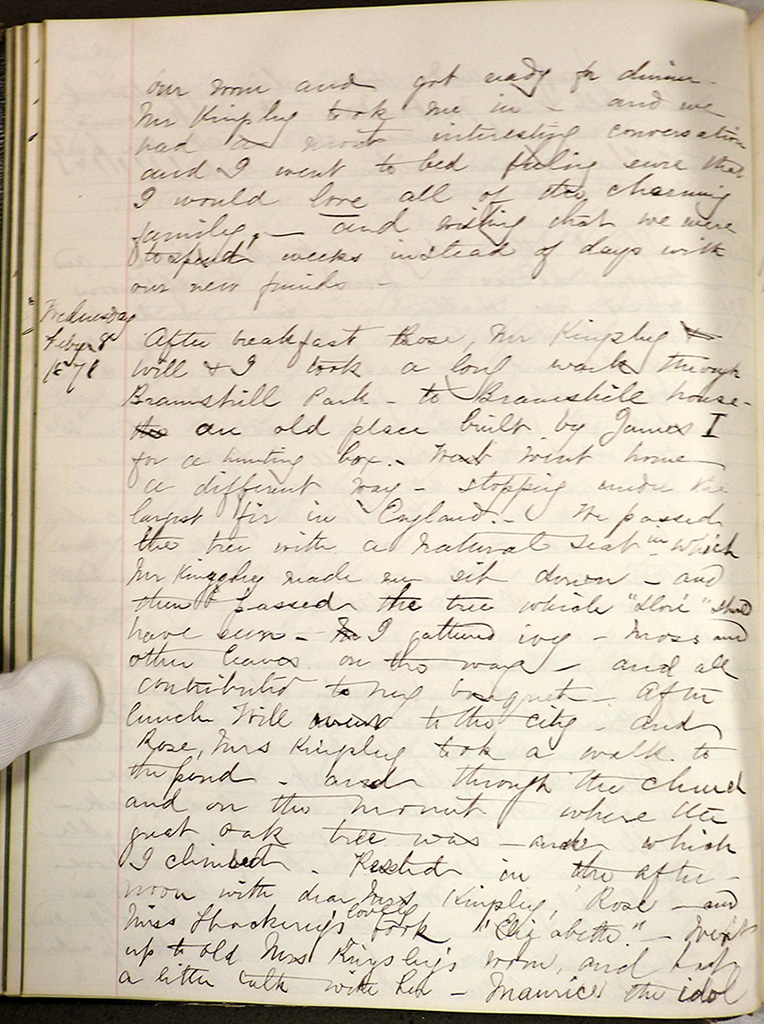 our room and got ready for dinner.
Mr Kingsley took me in - and we
had a most interesting conversation
and I went to bed feeling sure that
I would love all of the charming
family, - and wishing that we were
to spend weeks instead of days with
our new friends -
Wednesday
Feby 8
1871
After breakfast Rose, Mr Kingsley &
Will & I took a long walk through
Bramshill Park - to Bramshill house -
the an old place built by James I
for a hunting box. - went home
a different way - stopping under the
largest fir in England. - We passed
the tree with a natural seat in which
Mr Kingsley made me sit down - and
then passed the tree which
have seen - I gathered ivy - moss and
other leaves on the way - and all
contributed to my bouquet - After
lunch Will went to the city - and
Rose, Mrs Kingsley took a walk to
the pond - and through the church
and on the mount where the
great oak tree was - and which
I climbed. Rested in the after-
noon with dear Mrs Kingsley, Rose - and
Miss Thackeray's lovely book "Elizabeth." - Went
up to old Mrs Kingsley's room, and had
a little talk with her - Maurice the idol